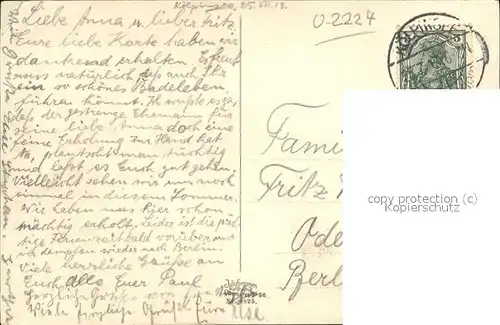 Kölpinsee, 25.VII.13.
Liebe Anna u. lieber Fritz
Eure liebe Karte haben wir
dankend erhalten. Es freut
uns natürlich daß auch Ihr
ein so schönes Badeleben
führen könnt. Ich wußte es ja
daß der gestrenge Ehemann für
seine liebe Anna doch eine
feine Erholung zur Hand hat
Na, plantscht man tüchtig
und laßt es Euch gut gehen.
Vielleicht sehen wir uns noch
einmal in diesem Sommer.
Wir haben uns hier schon
mächtig erholt. Leider ist die präch
tige Ferienzeit bald vorüber und
wir dampfen wieder nach Berlin
Viele herzliche Grüße an
Euch alle Euer Paul
Herzlich Grüße von
Viele herzlich Grüße Eure
U-2224
KÖLPINSEE
Fami
Fritz
Ode
Berl
copyright_____
Kopierschutz